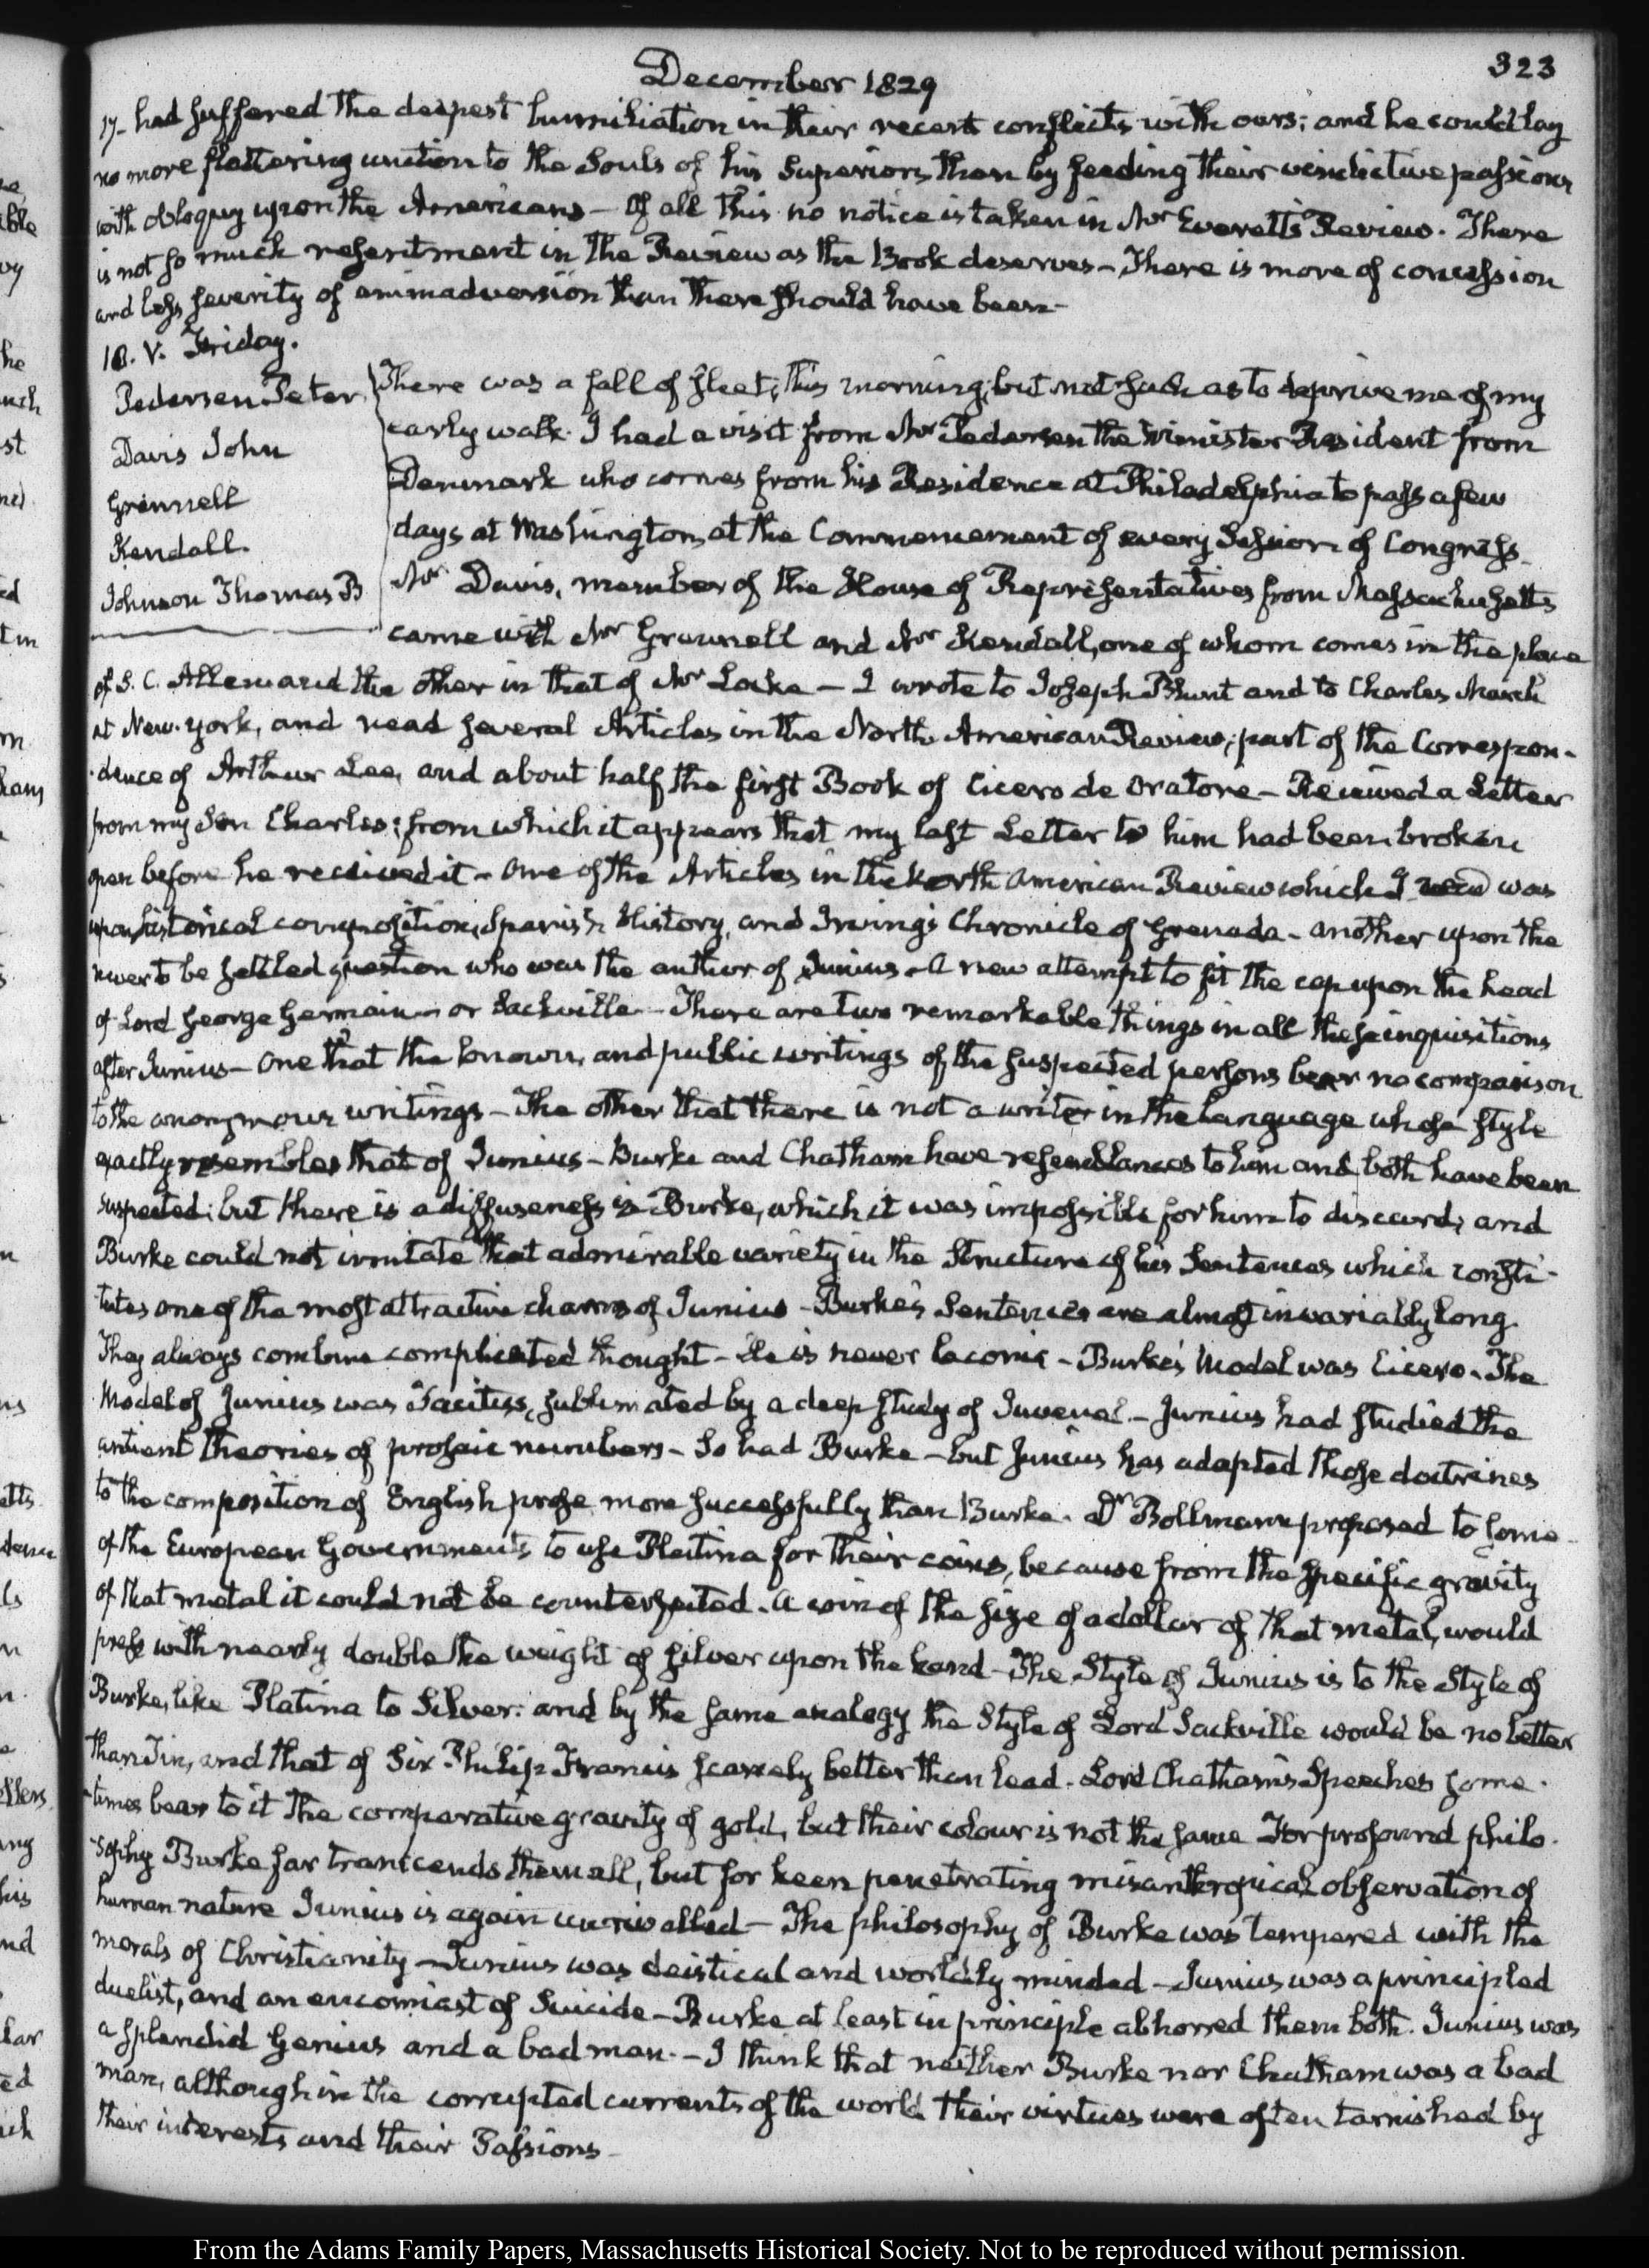 December 1829
323
17- had suffered the deepest humiliation in their recent conflicts with ours; and he could lay
no more flattering unction to the Souls of his Superiors than by feeding their vindictive passions
with obloquy upon the Americans — Of all this no notice is taken in Mr Everett's Review. There
is not so much resentment in the Review as the Book deserves — There is more of concession
and less severity of animadversion than there should have been —
18. V. Friday.
Pedersen Peter
Davis John
Grennell
Kendall.
Johnson Thomas B
There was a fall of sleet, this morning; but not such as to deprive me of my
early walk. I had a visit from Mr Pedersen the Minister Resident from
Denmark who comes from his Residence at Philadelphia to pass a few
days at Washington, at the Commencement of every Session of Congress.
Mr Davis, member of the House of Representatives from Massachusetts
came with Mr Grennell and Mr Kendall, one of whom comes in the place
of S. C. Allen and the other in that of Mr Locke — I wrote to Joseph Blunt and to Charles March
at New-York, and read several Articles in the North American Review; part of the Correspon-
-dence of Arthur Lee, and about half the first Book of Cicero de Oratore — Received a Letter
from my Son Charles; from which it appears that my last Letter to him had been broken
open before he received it — One of the Articles in the North American Review which I read was
upon historical composition, Spanish History, and Irving's Chronicle of Grenada — another upon the
never to be settled question who was the author of Junius — A new attempt to fit the cap upon the head
of Lord George Germain — or Sackville — There are two remarkable things in all these inquisitions
after Junius — One that the known, and public writings of the suspected persons bear no comparison
to the anonymous writings — The other that there is not a writer in the language whose style
exactly resembles that of Junius — Burke and Chatham have resemblances to him and both have been
suspected; but there is a diffuseness in Burke, which it was impossible for him to discard; and
Burke could not imitate that admirable variety in the Structure of his Sentences which consti-
-tutes one of the most attractive charms of Junius — Burke's Sentences are almost invariably long.
They always combine complicated thought — He is never laconic — Burke's Model was Cicero. The
Model of Junius was Tacitus, sublimated by a deep study of Juvenal — Junius had studied the
antient theories of prosaic numbers — So had Burke — but Junius has adapted those doctrines
to the composition of English prose more successfully than Burke. Dr Bollmann proposed to some
of the European Governments to use Platina for their coins, because from the specific gravity
of that metal it could not be counterfeited. A coin of the size of a dollar of that metal, would
press with nearly double the weight of silver upon the hand — The Style of Junius is to the Style of
Burke, like Platina to Silver: and by the same analogy the Style of Lord Sackville would be no better
than Tin, and that of Sir Philip Francis scarcely better than lead. Lord Chatham's Speeches some-
-times bear to it the comparative gravity of gold, but their colour is not the same For profound philo-
-sophy Burke far transcends them all, but for keen penetrating misanthropical observation of
human nature Junius is again unrivalled — The philosophy of Burke was tempered with the
morals of Christianity — Junius was deistical and worldly minded — Junius was a principled
duelist, and an encomiast of Suicide — Burke at least in principle abhorred them both. Junius was
a splendid Genius and a bad man. — I think that neither Burke nor Chatham was a bad
man, although in the corrupted currents of the world their virtues were often tarnished by
their interests and their Passions —
From the Adams Family Papers, Massachusetts Historical Society. Not to be reproduced without permission.